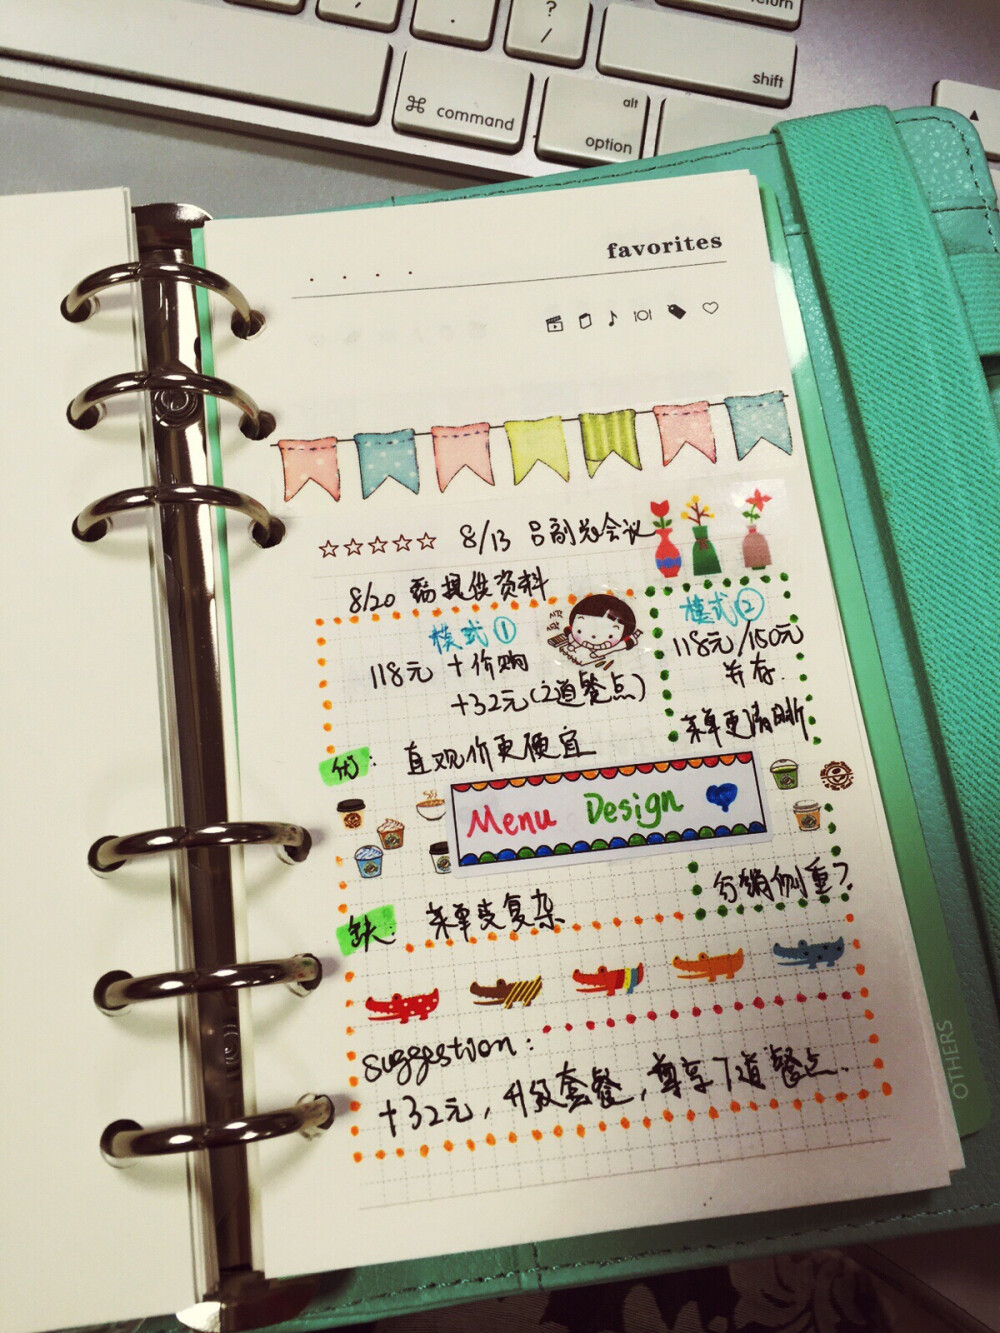 return
?
/
shift
⌘ command
alt
option
favorites
☆☆☆☆☆ 8/13 吕副总会议
8/20 需提供资料
模式①
118元 +价购
+32元(2道餐点)
模式②
118元/150元
并存.
菜单更清晰
优: 直观价更便宜
Menu Design
分销侧重?
缺 菜单变复杂
suggestion:
+32元, 升级套餐, 尊享7道餐点.
OTHERS